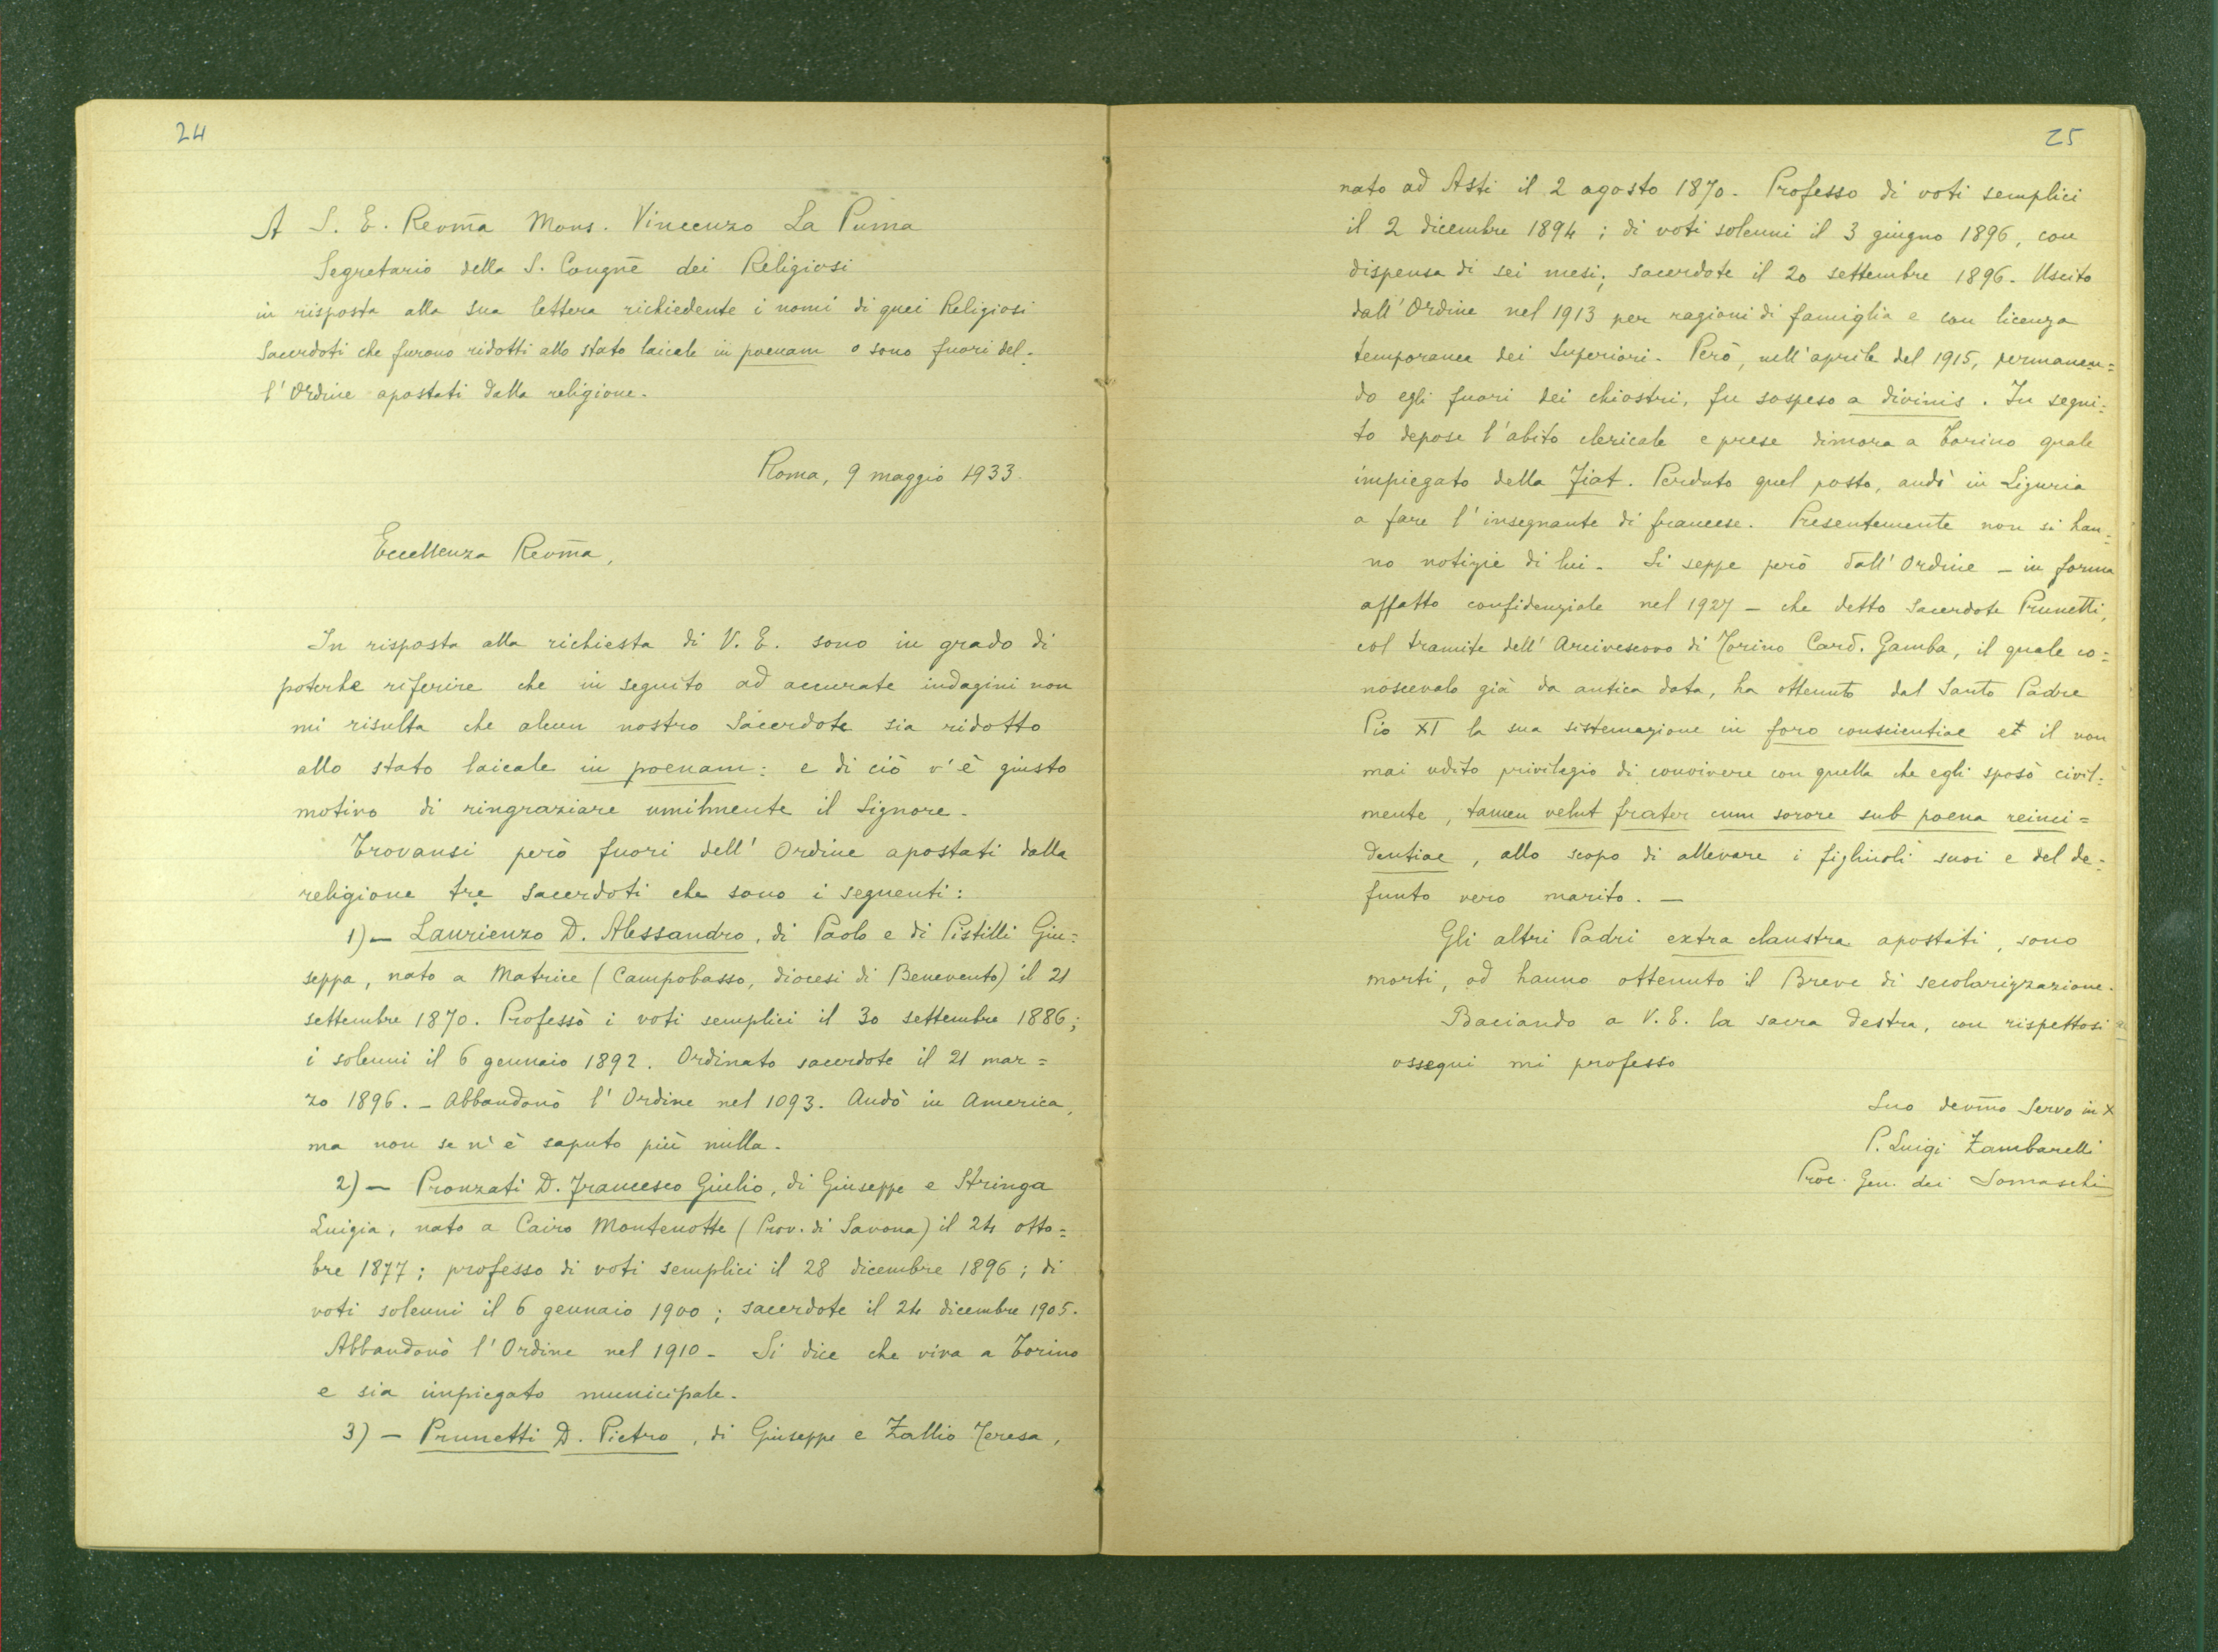 24
A S. E. Revm̄a Mons. Vincenzo La Puma
Segretario della S. Congnē dei Religiosi
in risposta alla sua lettera richiedente i nomi di quei Religiosi
Sacerdoti che furono ridotti allo stato laicale in poenam o sono fuori del-
l'Ordine apostati dalla religione.
Roma, 9 maggio 1933.
Eccellenza Revm̄a,
In risposta alla richiesta di V. E. sono in grado di
poterle riferire che in seguito ad accurate indagini non
mi risulta che alcun nostro Sacerdote sia ridotto
allo stato laicale in poenam: e di ciò v'è giusto
motivo di ringraziare umilmente il Signore.
Trovansi però fuori dell'Ordine apostati dalla
religione tre sacerdoti che sono i seguenti:
1) — Laurienzo D. Alessandro, di Paolo e di Pistilli Giu=
seppa, nato a Matrice (Campobasso, diocesi di Benevento) il 21
settembre 1870. Professò i voti semplici il 30 settembre 1886;
i solenni il 6 gennaio 1892. Ordinato sacerdote il 21 mar=
zo 1896. - Abbandonò l'Ordine nel 1093. Andò in America,
ma non se n'è saputo più nulla.
2) — Pronzati D. Francesco Giulio, di Giuseppe e Stringa
Luigia, nato a Cairo Montenotte (Prov. di Savona) il 24 otto=
bre 1877; professo di voti semplici il 28 dicembre 1896; di
voti solenni il 6 gennaio 1900; sacerdote il 24 dicembre 1905.
Abbandonò l'Ordine nel 1910 - Si dice che viva a Torino
e sia impiegato municipale.
3) — Prunetti D. Pietro, di Giuseppe e Zallio Teresa,
25
nato ad Asti il 2 agosto 1870. Professo di voti semplici
il 2 dicembre 1894; di voti solenni il 3 giugno 1896, con
dispensa di sei mesi; sacerdote il 20 settembre 1896. Uscito
dall'Ordine nel 1913 per ragioni di famiglia e con licenza
temporanea dei Superiori. Però, nell'aprile del 1915, permanen=
do egli fuori dei chiostri, fu sospeso a divinis. In segui=
to depose l'abito clericale e prese dimora a Torino quale
impiegato della Fiat. Perduto quel posto, andò in Liguria
a fare l'insegnante di francese. Presentemente non si han=
no notizie di lui. Si seppe però dall'Ordine - in forma
affatto confidenziale nel 1927 - che detto Sacerdote Prunetti,
col tramite dell'Arcivescovo di Torino Card. Gamba, il quale co=
noscevalo già da antica data, ha ottenuto dal Santo Padre
Pio XI la sua sistemazione in foro conscientiae et il non
mai udito privilegio di convivere con quella che egli sposò civil=
mente, tamen velut frater cum sorore sub poena reinci=
dentiae, allo scopo di allevare i figliuoli suoi e del de=
funto vero marito. —
Gli altri Padri extra claustra apostati, sono
morti, od hanno ottenuto il Breve di secolarizzazione.
Baciando a V. E. la sacra destra, con rispettosi
ossequi mi professo
Suo devm̄o Servo in X
P. Luigi Zambarelli
Proc. Gen. dei Somaschi